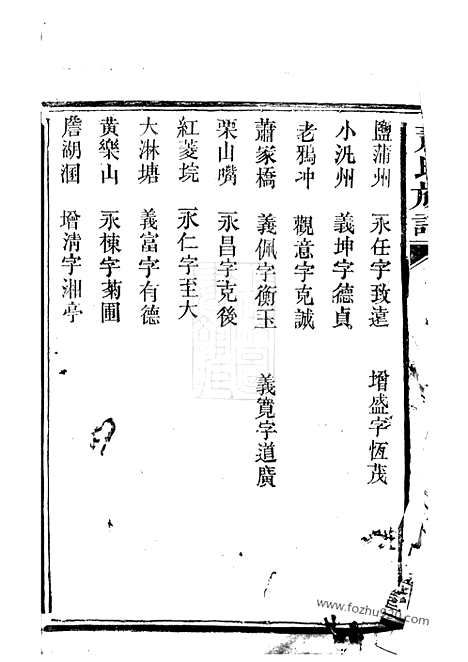 氏族譜
鹽蒲州 永任字致遠 增盛字恆茂
小汎州 義坤字德貞
老鴉冲 觀意字克誠
蕭家橋 義佩字衡玉 義寬字道廣
栗山嘴 永昌字克後
紅菱垸 永仁字至大
大淋塘 義富字有德
黃樂山 永棟字菊圃
詹湖涃 增清字湘亭
www.fozhu920.com